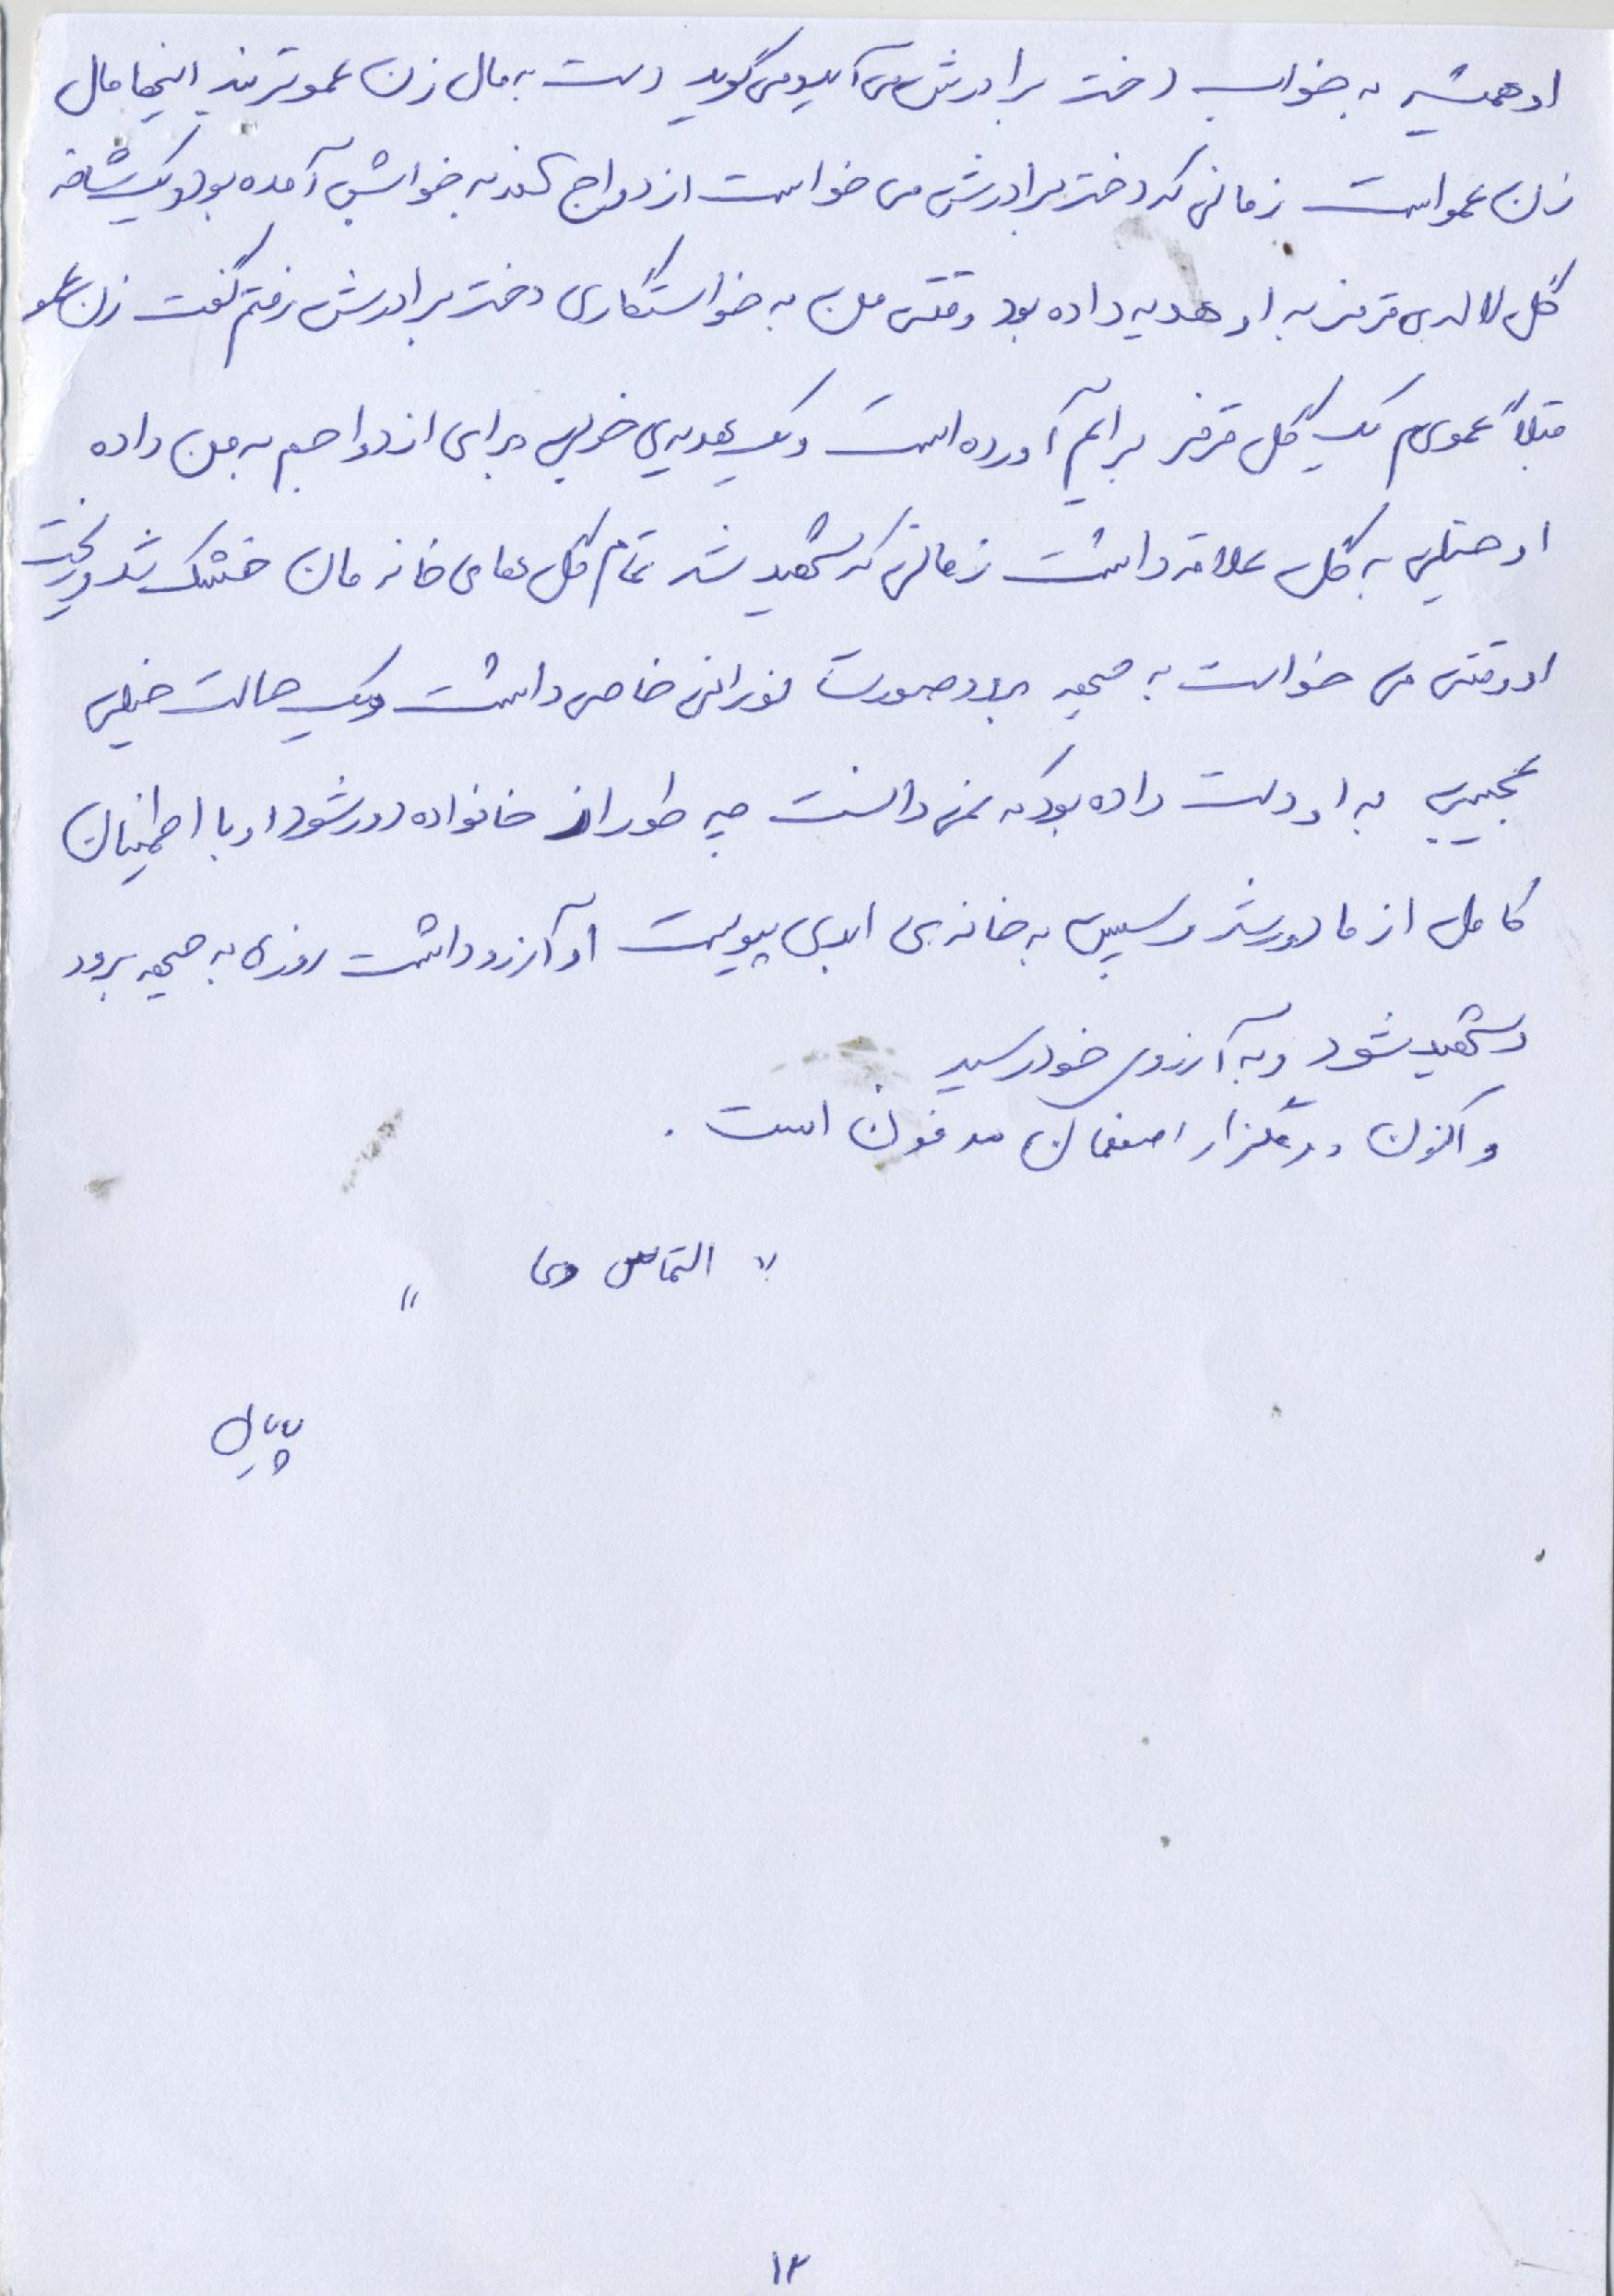 او همیشه به خواب دختر برادرش می آید و می گوید دست به مال زن عمو نزنید اینجا مال
زن عمو است زمانی که دختر برادرش می خواست ازدواج کند به خوابش آمده بود و یک شاخه
گل لاله ی قرمز به او هدیه داده بود وقتی من به خواستگاری دختر برادرش رفتم گفت زن عمو
قبلاً عمویم یک گل قرمز برایم آورده است و یک هدیه ی خوبی برای ازدواجم به من داده
او خیلی به گل علاقه داشت زمانی که شهید شد تمام گل های خانه مان خشک شد و ریخت
او وقتی می خواست به جبهه برود صورت نورانی خاصی داشت و یک حالت خیلی
عجیبی به او دست داده بود که نمی دانست چه طور از خانواده دور شود او با اطمینان
کامل از ما دور شد و سپس به خانه ی ابدی پیوست او آرزو داشت روزی به جبهه برود
و شهید شود و به آرزوی خود رسید
و اکنون در گلزار اصفهان مدفون است .
" التماس دعا "
پایان
۱۳